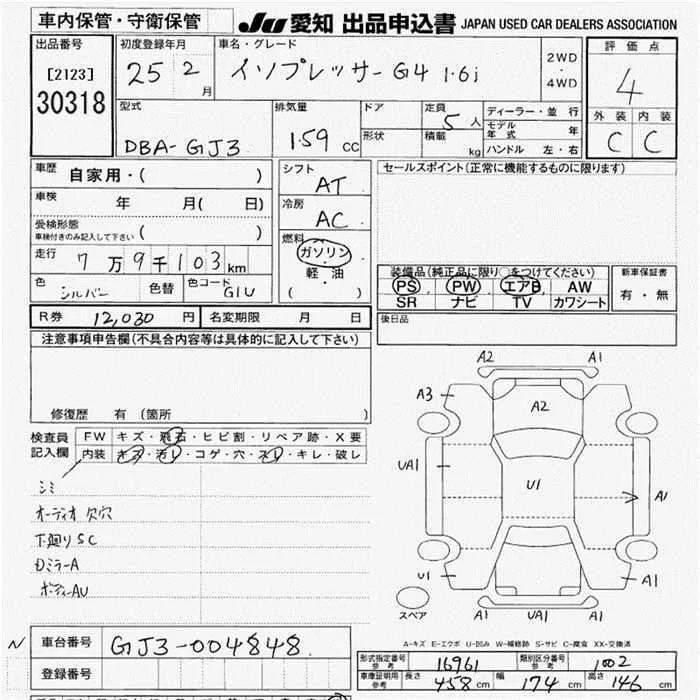 車内保管・守衛保管
JU 愛知 出品申込書 JAPAN USED CAR DEALERS ASSOCIATION
出品番号
[2123]
30318
初度登録年月
25 2 月
車名・グレード
インプレッサーG4 1.6i
2WD
・
4WD
評価点
4
外装 内装
C C
型式
DBA-GJ3
排気量
1.59 cc
ドア
形状
定員
5 人
積載
kg
ディーラー・並行
モデル年式 年
ハンドル 左・右
車歴
自家用・( )
車検
年 月( 日)
受検形態
車検付きのみ記入して下さい ( )
走行
7万9千103km
色
シルバー 色替
色コード
G1U
シフト
AT
冷房
AC
燃料
ガソリン
・
軽・油
( )
セールスポイント(正常に機能するものに限ります)
装備品(純正品に限り○をつけてください)
PS PW エアB AW
SR ナビ TV カワシート
新車保証書
有・無
R券 12,030 円 名変期限 月 日
後日品
注意事項申告欄(不具合内容等は具体的に記入して下さい)
修復歴 有 (箇所 )
検査員
記入欄
FW キズ・飛石・ヒビ割・リペア跡・X要
内装 キズ・汚レ・コゲ・穴・スレ・キレ・破レ
シミ
オーディオ欠穴
下廻りSC
Dミラー A
ボディーAU
A2 A1
A3
A2
UA1
U1
A1
U1
A1
A1 UA1 A1
スペア
A-キズ E-エクボ U-凹み W-補修跡 S-サビ C-腐食 XX-交換済
N
車台番号
GJ3-004848
登録番号
形式指定番号
参考
16961
類別区分番号
参考
1002
車庫証明用
参考
長さ 458 cm 幅 174 cm 高さ 146 cm